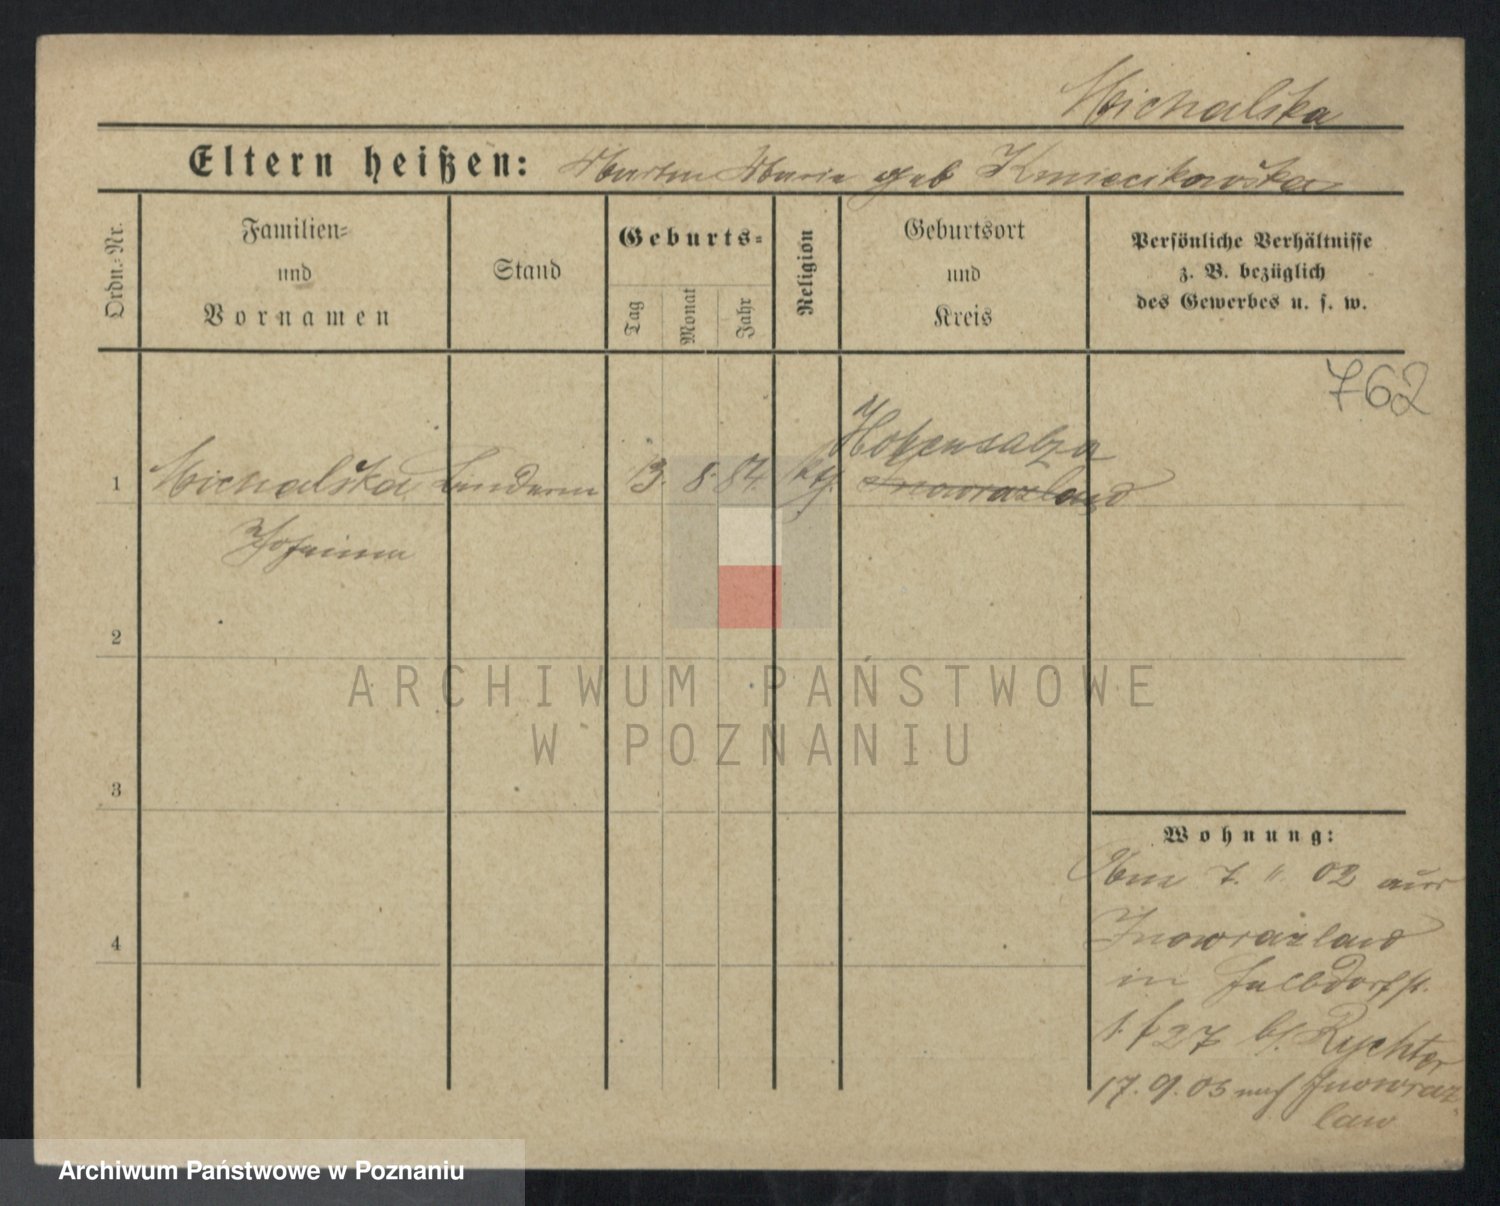 Michalska
Eltern heißen: Martin Marie geb Kmiecikowska
Ordn.-Nr.
Familien-
und
Vornamen
Stand
Geburts-
Tag
Monat
Jahr
Religion
Geburtsort
und
Kreis
Persönliche Verhältnisse
z. B. bezüglich
des Gewerbes u. s. w.
762
Hohensalza
1 Michalska 13. 8. 84. kth. Inowrazlaw
2
3
4
ARCHIWUM PAŃSTWOWE
W POZNANIU
Wohnung:
Am 7. 11. 02 aus
Inowrazlaw
in
27 b/ Rychter
17. 9. 03 nach Inowraz-
law
Archiwum Państwowe w Poznaniu